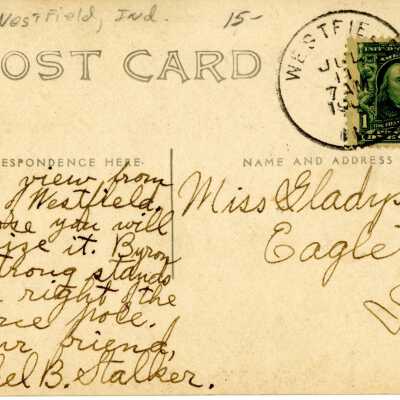 Westfield, Ind. 15-
OST CARD
WESTFIEL
JUL
11
7 AM
190
1
ESPONDENCE HERE.
NAME AND ADDRESS
view from
Westfield.
you will
it. Byron
trong stands
right of the
pole.
ur friend,
el B. Stalker.
Miss Gladys
Eagle